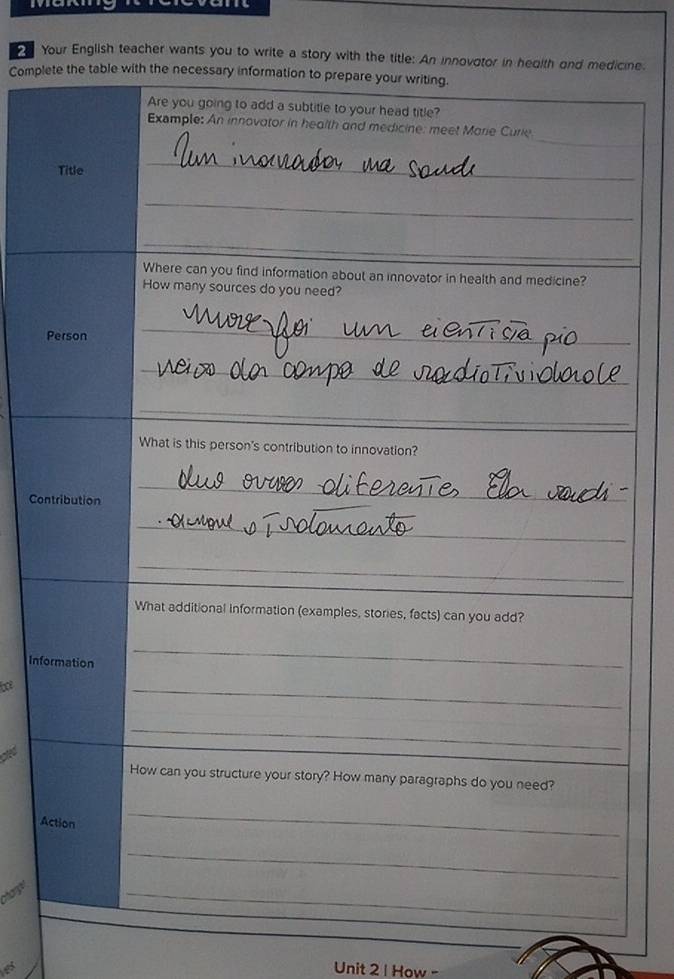 2 Your English teacher wants you to write a story with the title: An innovator in health and medicine.
Complete the table with the necessary information to prepare your writing.
Title
Are you going to add a subtitle to your head title?
Example: An innovator in health and medicine: meet Marie Curie.
Um inovador na saude
Person
Where can you find information about an innovator in health and medicine?
How many sources do you need?
foi um cientista pio
neiro da campo de radiotividade
Contribution
What is this person's contribution to innovation?
diferentes Ela
tratamento
Information
What additional information (examples, stories, facts) can you add?
Action
How can you structure your story? How many paragraphs do you need?
face
change
Unit 2 | How -